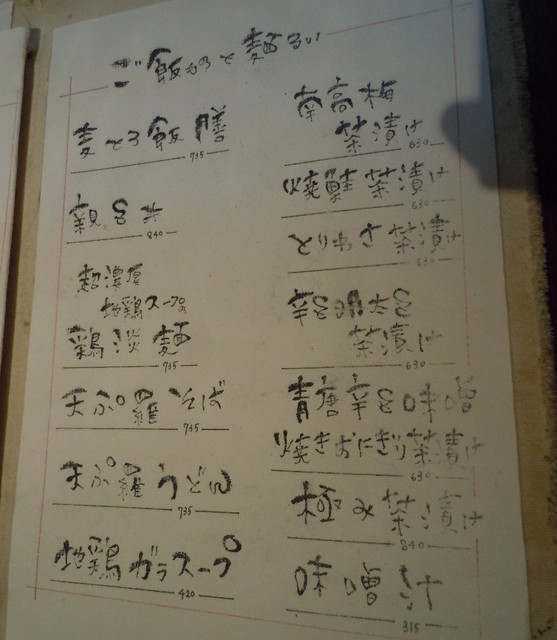 ご飯ものと麺るい
麦とろ飯膳
735
親子丼
840
超濃厚
地鶏スープの
鶏淡麺
735
天ぷ羅そば
735
天ぷ羅うどん
735
地鶏ガラスープ
420
南高梅
茶漬け
630
焼鮭茶漬け
630
とりわさ茶漬け
630
辛子明太子
茶漬け
630
青唐辛子味噌
焼きおにぎり茶漬け
630
極み茶漬け
840
味噌汁
315